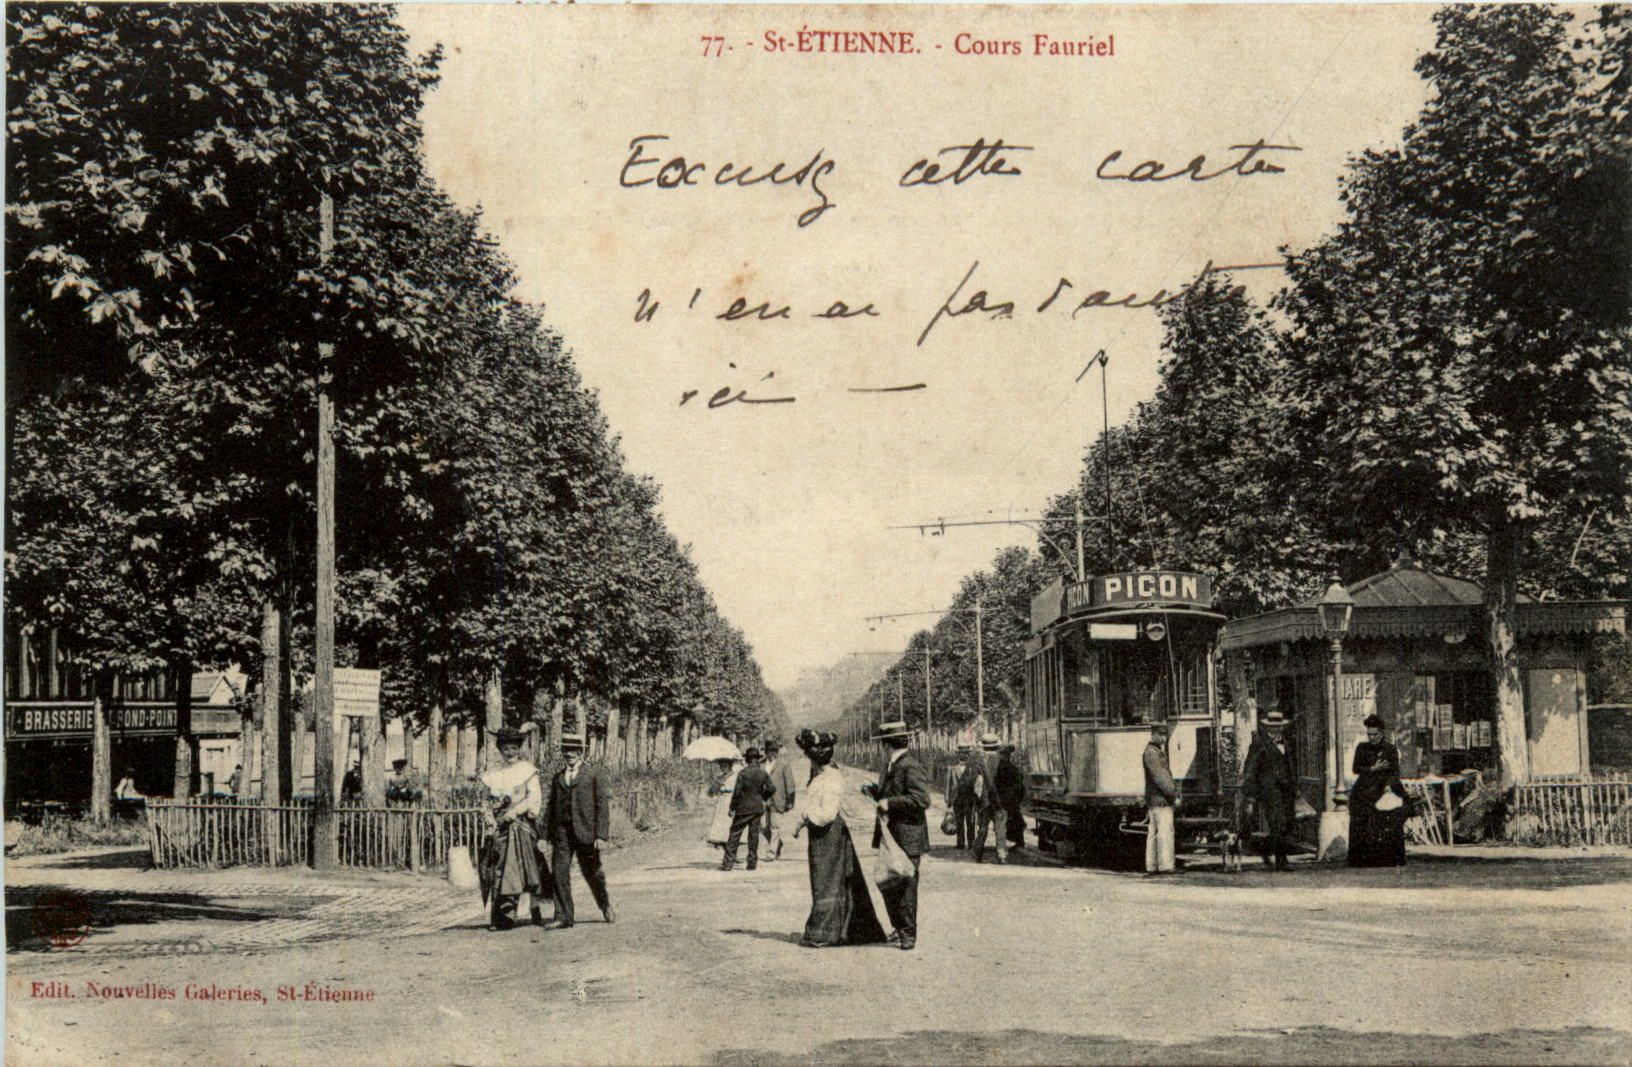 77. - St-ÉTIENNE. - Cours Fauriel
Excusez cette carte
n'en ai pas d'autre
ici —
PICON
PICON
PHARE
BRASSERIE
ROND-POINT
Edit. Nouvelles Galeries, St-Étienne